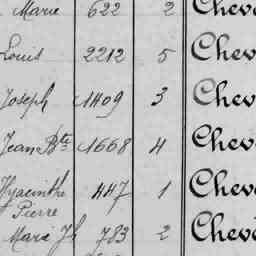 Marie 622 2 Chev
Louis 2212 5 Chev
Joseph 1409 3 Chev
Jean Bte 1668 4 Chev
Hyacinthe 447 1 Chev
Pierre
Marie Jh 783 2 Chev